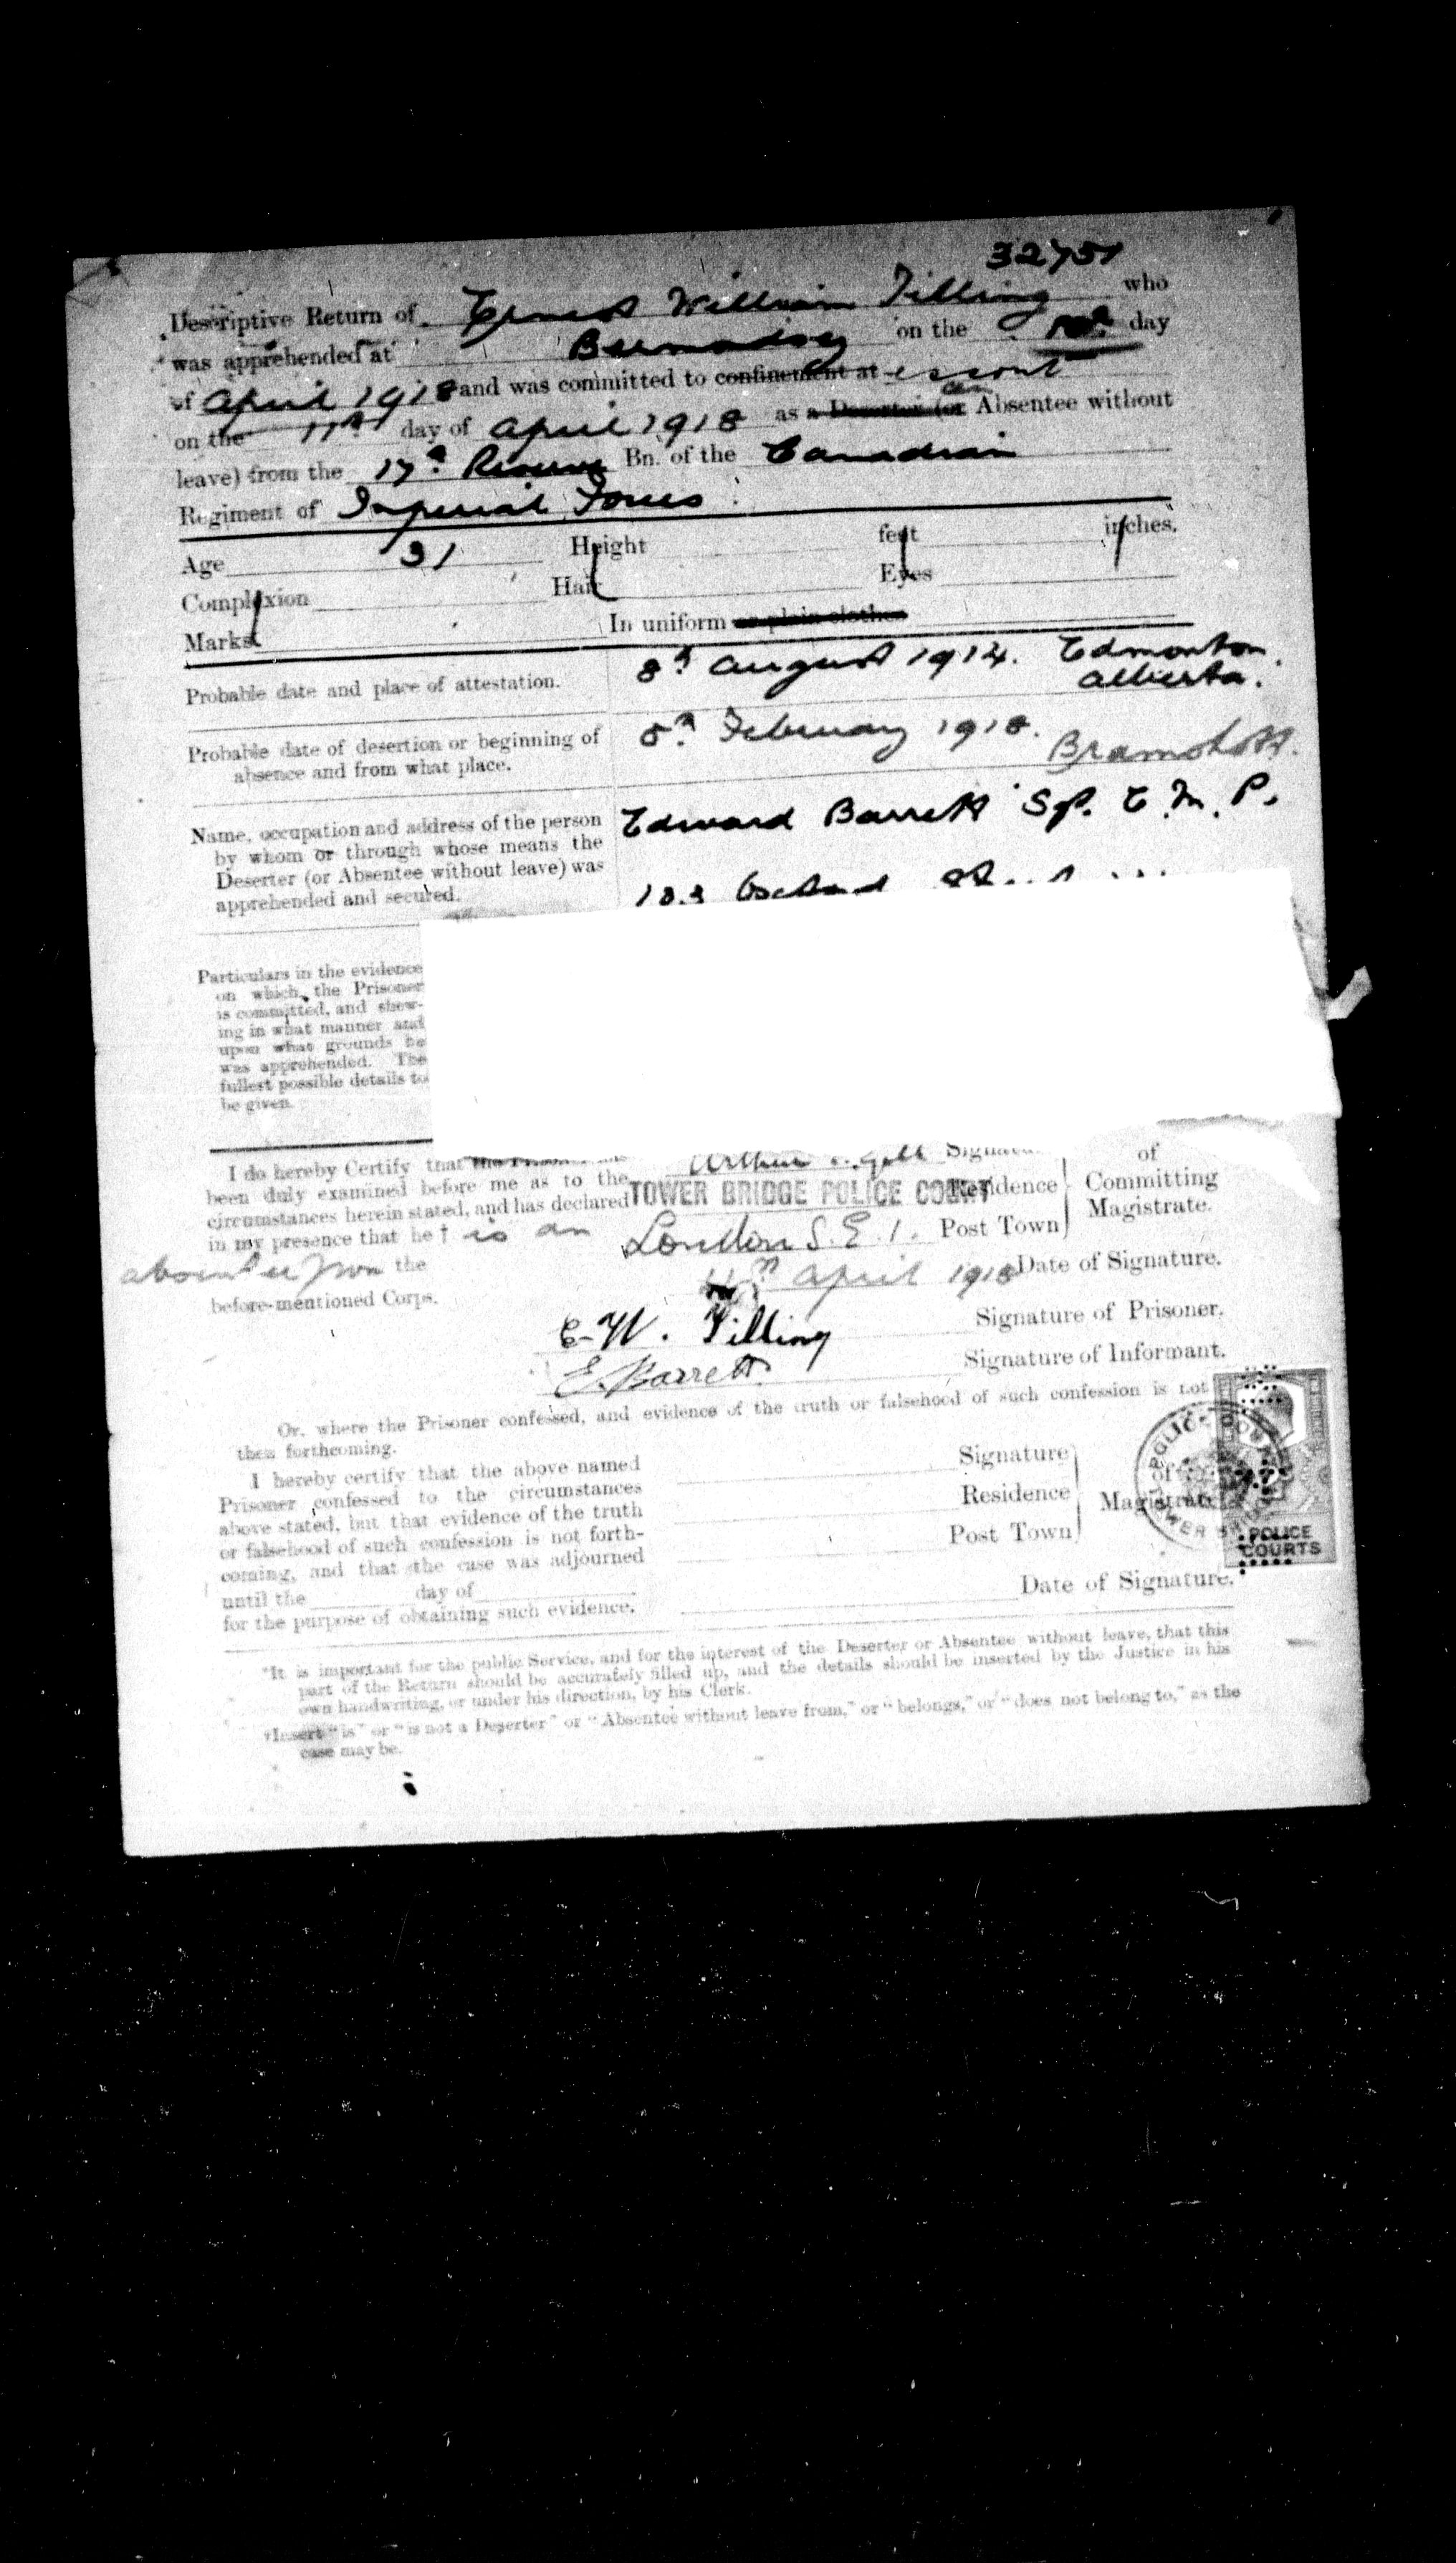 32751
Descriptive Return of Ernest William Tilling who
was apprehended at Bermondsey on the 10th day
of April 1918 and was committed to confinement at escort
on the 11th day of April 1918 as a Deserter (or an Absentee without
leave) from the 17th Reserve Bn. of the Canadian
Regiment of Imperial Forces
Age 31 Height feet inches.
Complexion Hair Eyes
Marks In uniform or plain clothes
Probable date and place of attestation. 8th August 1914. Edmonton
Alberta.
Probable date of desertion or beginning of
absence and from what place. 8th February 1918. Bramshott.
Name, occupation and address of the person
by whom or through whose means the
Deserter (or Absentee without leave) was
apprehended and secured. Edward Barrett Sgt. C. M. P.
103
Particulars in the evidence
on which the Prisoner
is committed, and shew-
ing in what manner and
upon what grounds he
was apprehended. The
fullest possible details to
be given.
I do hereby Certify that the Prisoner has
been duly examined before me as to the
circumstances herein stated, and has declared
in my presence that he † is an
absentee from the
before-mentioned Corps.
Arthur Gill Signature of
TOWER BRIDGE POLICE COURT Residence Committing
London S.E.1. Post Town Magistrate.
11th April 1918 Date of Signature.
E. W. Tilling Signature of Prisoner.
E. Barrett Signature of Informant.
Or, where the Prisoner confessed, and evidence of the truth or falsehood of such confession is not
then forthcoming.
I hereby certify that the above named
Prisoner confessed to the circumstances
above stated, but that evidence of the truth
or falsehood of such confession is not forth-
coming, and that the case was adjourned
until the day of
for the purpose of obtaining such evidence.
Signature
Residence of Magistrate
Post Town
Date of Signature.
POLICE
COURTS
*It is important for the public Service, and for the interest of the Deserter or Absentee without leave, that this
part of the Return should be accurately filled up, and the details should be inserted by the Justice in his
own handwriting, or under his direction, by his Clerk.
†Insert "is" or "is not a Deserter" or "Absentee without leave from," or "belongs," or "does not belong to," as the
case may be.